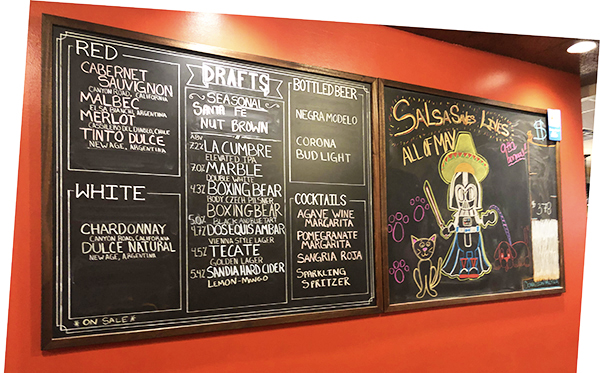 RED
CABERNET
SAUVIGNON
CANYON ROAD, CALIFORNIA
MALBEC
ELSA BIANCHI, ARGENTINA
MERLOT
CASILLERO DEL DIABLO, CHILE
TINTO DULCE
NEW AGE, ARGENTINA
WHITE
CHARDONNAY
CANYON ROAD, CALIFORNIA
DULCE NATURAL
NEW AGE, ARGENTINA
*ON SALE*
DRAFTS
SEASONAL
SANTA FE
NUT BROWN
ABV
7.2% LA CUMBRE
ELEVATED IPA
7.0% MARBLE
DOUBLE WHITE
4.3% BOXING BEAR
BODY CZECH PILSNER
BOXING BEAR
5.0% BLACK AND TART
4.7% DOS EQUIS AMBAR
VIENNA STYLE LAGER
4.5% TECATE
GOLDEN LAGER
5.4% SANDIA HARD CIDER
LEMON-MANGO
BOTTLED BEER
NEGRA MODELO
CORONA
BUD LIGHT
COCKTAILS
AGAVE WINE
MARGARITA
POMEGRANATE
MARGARITA
SANGRIA ROJA
SPARKLING
SPRITZER
SALSA SAVES LIVES
ALL OF MAY
$
378